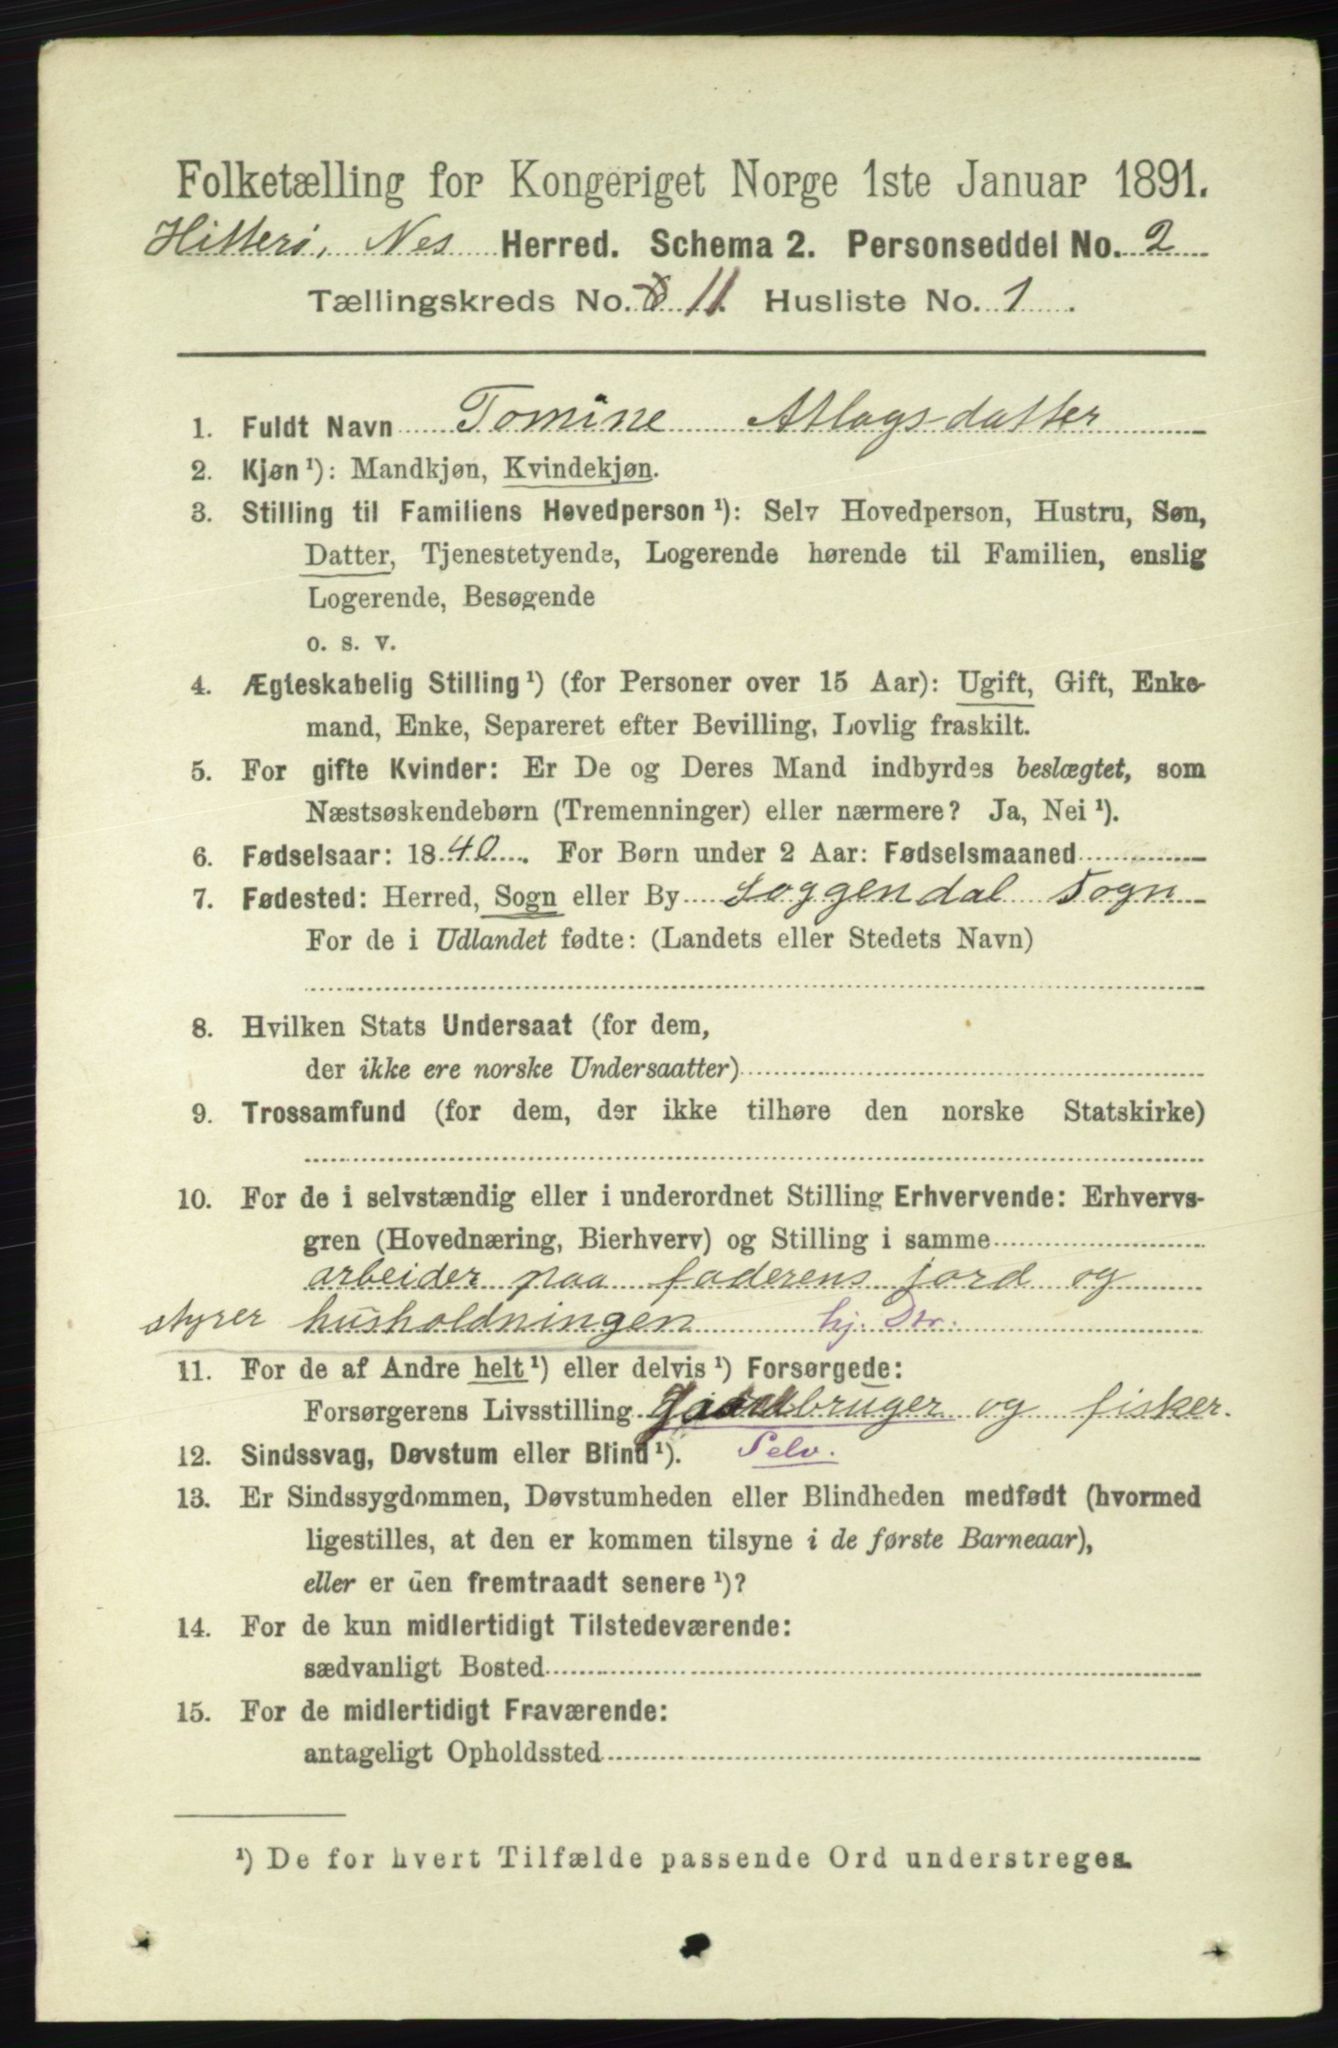 Folketælling for Kongeriget Norge 1ste Januar 1891.
Hitterø, Nes Herred. Schema 2. Personseddel No. 2
Tællingskreds No. 11. Husliste No. 1.
1. Fuldt Navn Tomine Atlagsdatter
2. Kjøn ¹): Mandkjøn, Kvindekjøn.
3. Stilling til Familiens Hovedperson ¹): Selv Hovedperson, Hustru, Søn,
Datter, Tjenestetyende, Logerende hørende til Familien, enslig
Logerende, Besøgende
o. s. v.
4. Ægteskabelig Stilling ¹) (for Personer over 15 Aar): Ugift, Gift, Enke-
mand, Enke, Separeret efter Bevilling, Lovlig fraskilt.
5. For gifte Kvinder: Er De og Deres Mand indbyrdes beslægtet, som
Næstsøskendebørn (Tremenninger) eller nærmere? Ja, Nei ¹).
6. Fødselsaar: 1840. For Børn under 2 Aar: Fødselsmaaned
7. Fødested: Herred, Sogn eller By Soggendal Sogn
For de i Udlandet fødte: (Landets eller Stedets Navn)
8. Hvilken Stats Undersaat (for dem,
der ikke ere norske Undersaatter)
9. Trossamfund (for dem, der ikke tilhøre den norske Statskirke)
10. For de i selvstændig eller i underordnet Stilling Erhvervende: Erhvervs-
gren (Hovednæring, Bierhverv) og Stilling i samme
arbeider paa faderens jord og
styrer husholdningen hj. Dtr.
11. For de af Andre helt ¹) eller delvis ¹) Forsørgede:
Forsørgerens Livsstilling Gaardbruger og fisker.
12. Sindssvag, Døvstum eller Blind ¹). Selv.
13. Er Sindssygdommen, Døvstumheden eller Blindheden medfødt (hvormed
ligestilles, at den er kommen tilsyne i de første Barneaar),
eller er den fremtraadt senere ¹)?
14. For de kun midlertidigt Tilstedeværende:
sædvanligt Bosted
15. For de midlertidigt Fraværende:
antageligt Opholdssted
¹) De for hvert Tilfælde passende Ord understreges.